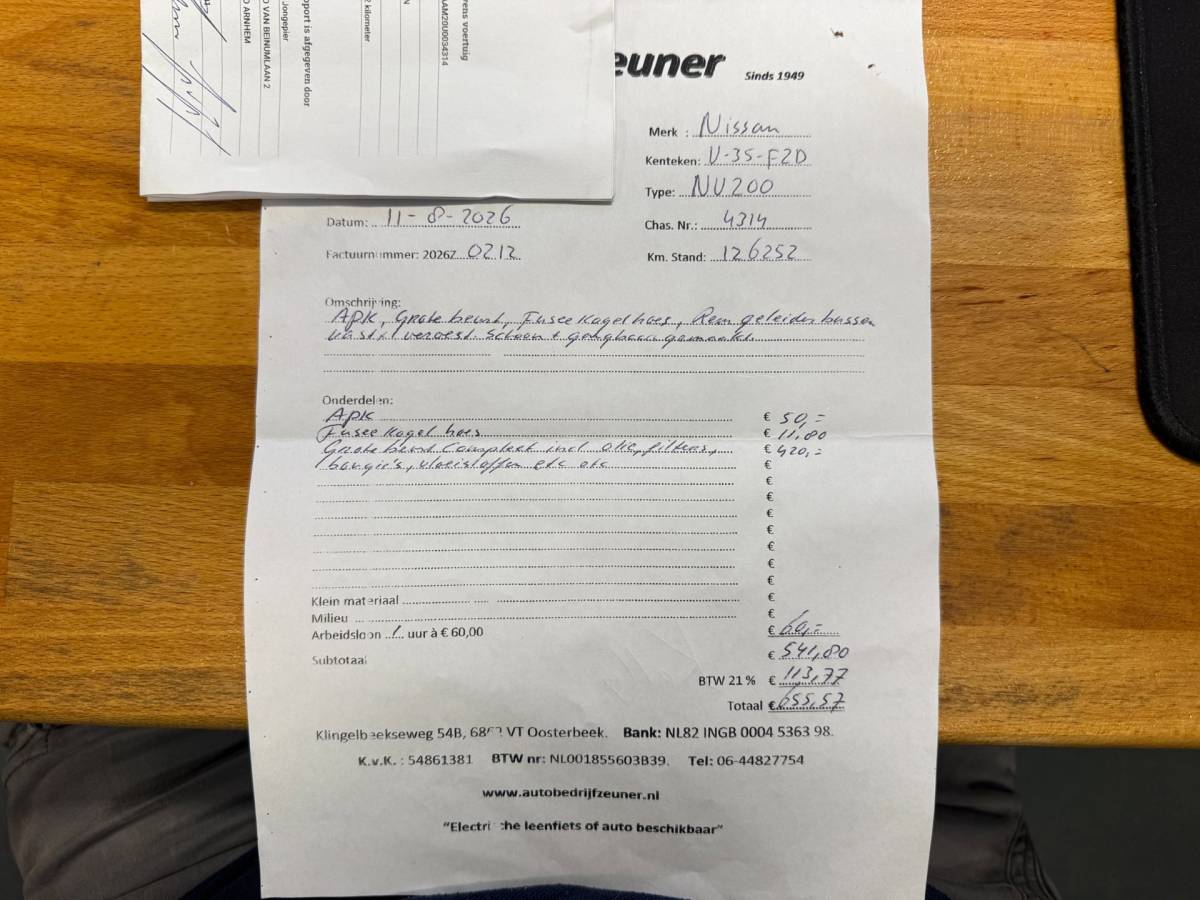 euner Sinds 1949
port is afgegeven door
Jongepier
D VAN BEINUMLAAN 2
D ARNHEM
2 kilometer
N
AM20U0034314
vens voertuig
Merk : Nissan
Kenteken: V-35-FZD
Type: NV200
Datum: 11-8-2026
Chas. Nr.: 4314
Factuurnummer: 2026Z 0212
Km. Stand: 126252
Omschrijving:
APK, Grote beurt, Fusee Kogel hoes, Rem geleider bussen
vast/verroest. Schoon + gangbaar gemaakt.
Onderdelen:
APK € 50,=
Fusee Kogel hoes € 11,80
Grote beurt Compleet incl olie, filters, € 420,=
bougie's, vloeistoffen etc etc €
€
€
€
€
€
€
€
Klein materiaal €
Milieu €
Arbeidsloon 1 uur à € 60,00 € 60,=
Subtotaal € 541,80
BTW 21 % € 113,77
Totaal € 655,57
Klingelbeekseweg 54B, 6862 VT Oosterbeek. Bank: NL82 INGB 0004 5363 98.
K.v.K. : 54861381 BTW nr: NL001855603B39. Tel: 06-44827754
www.autobedrijfzeuner.nl
"Electrische leenfiets of auto beschikbaar"